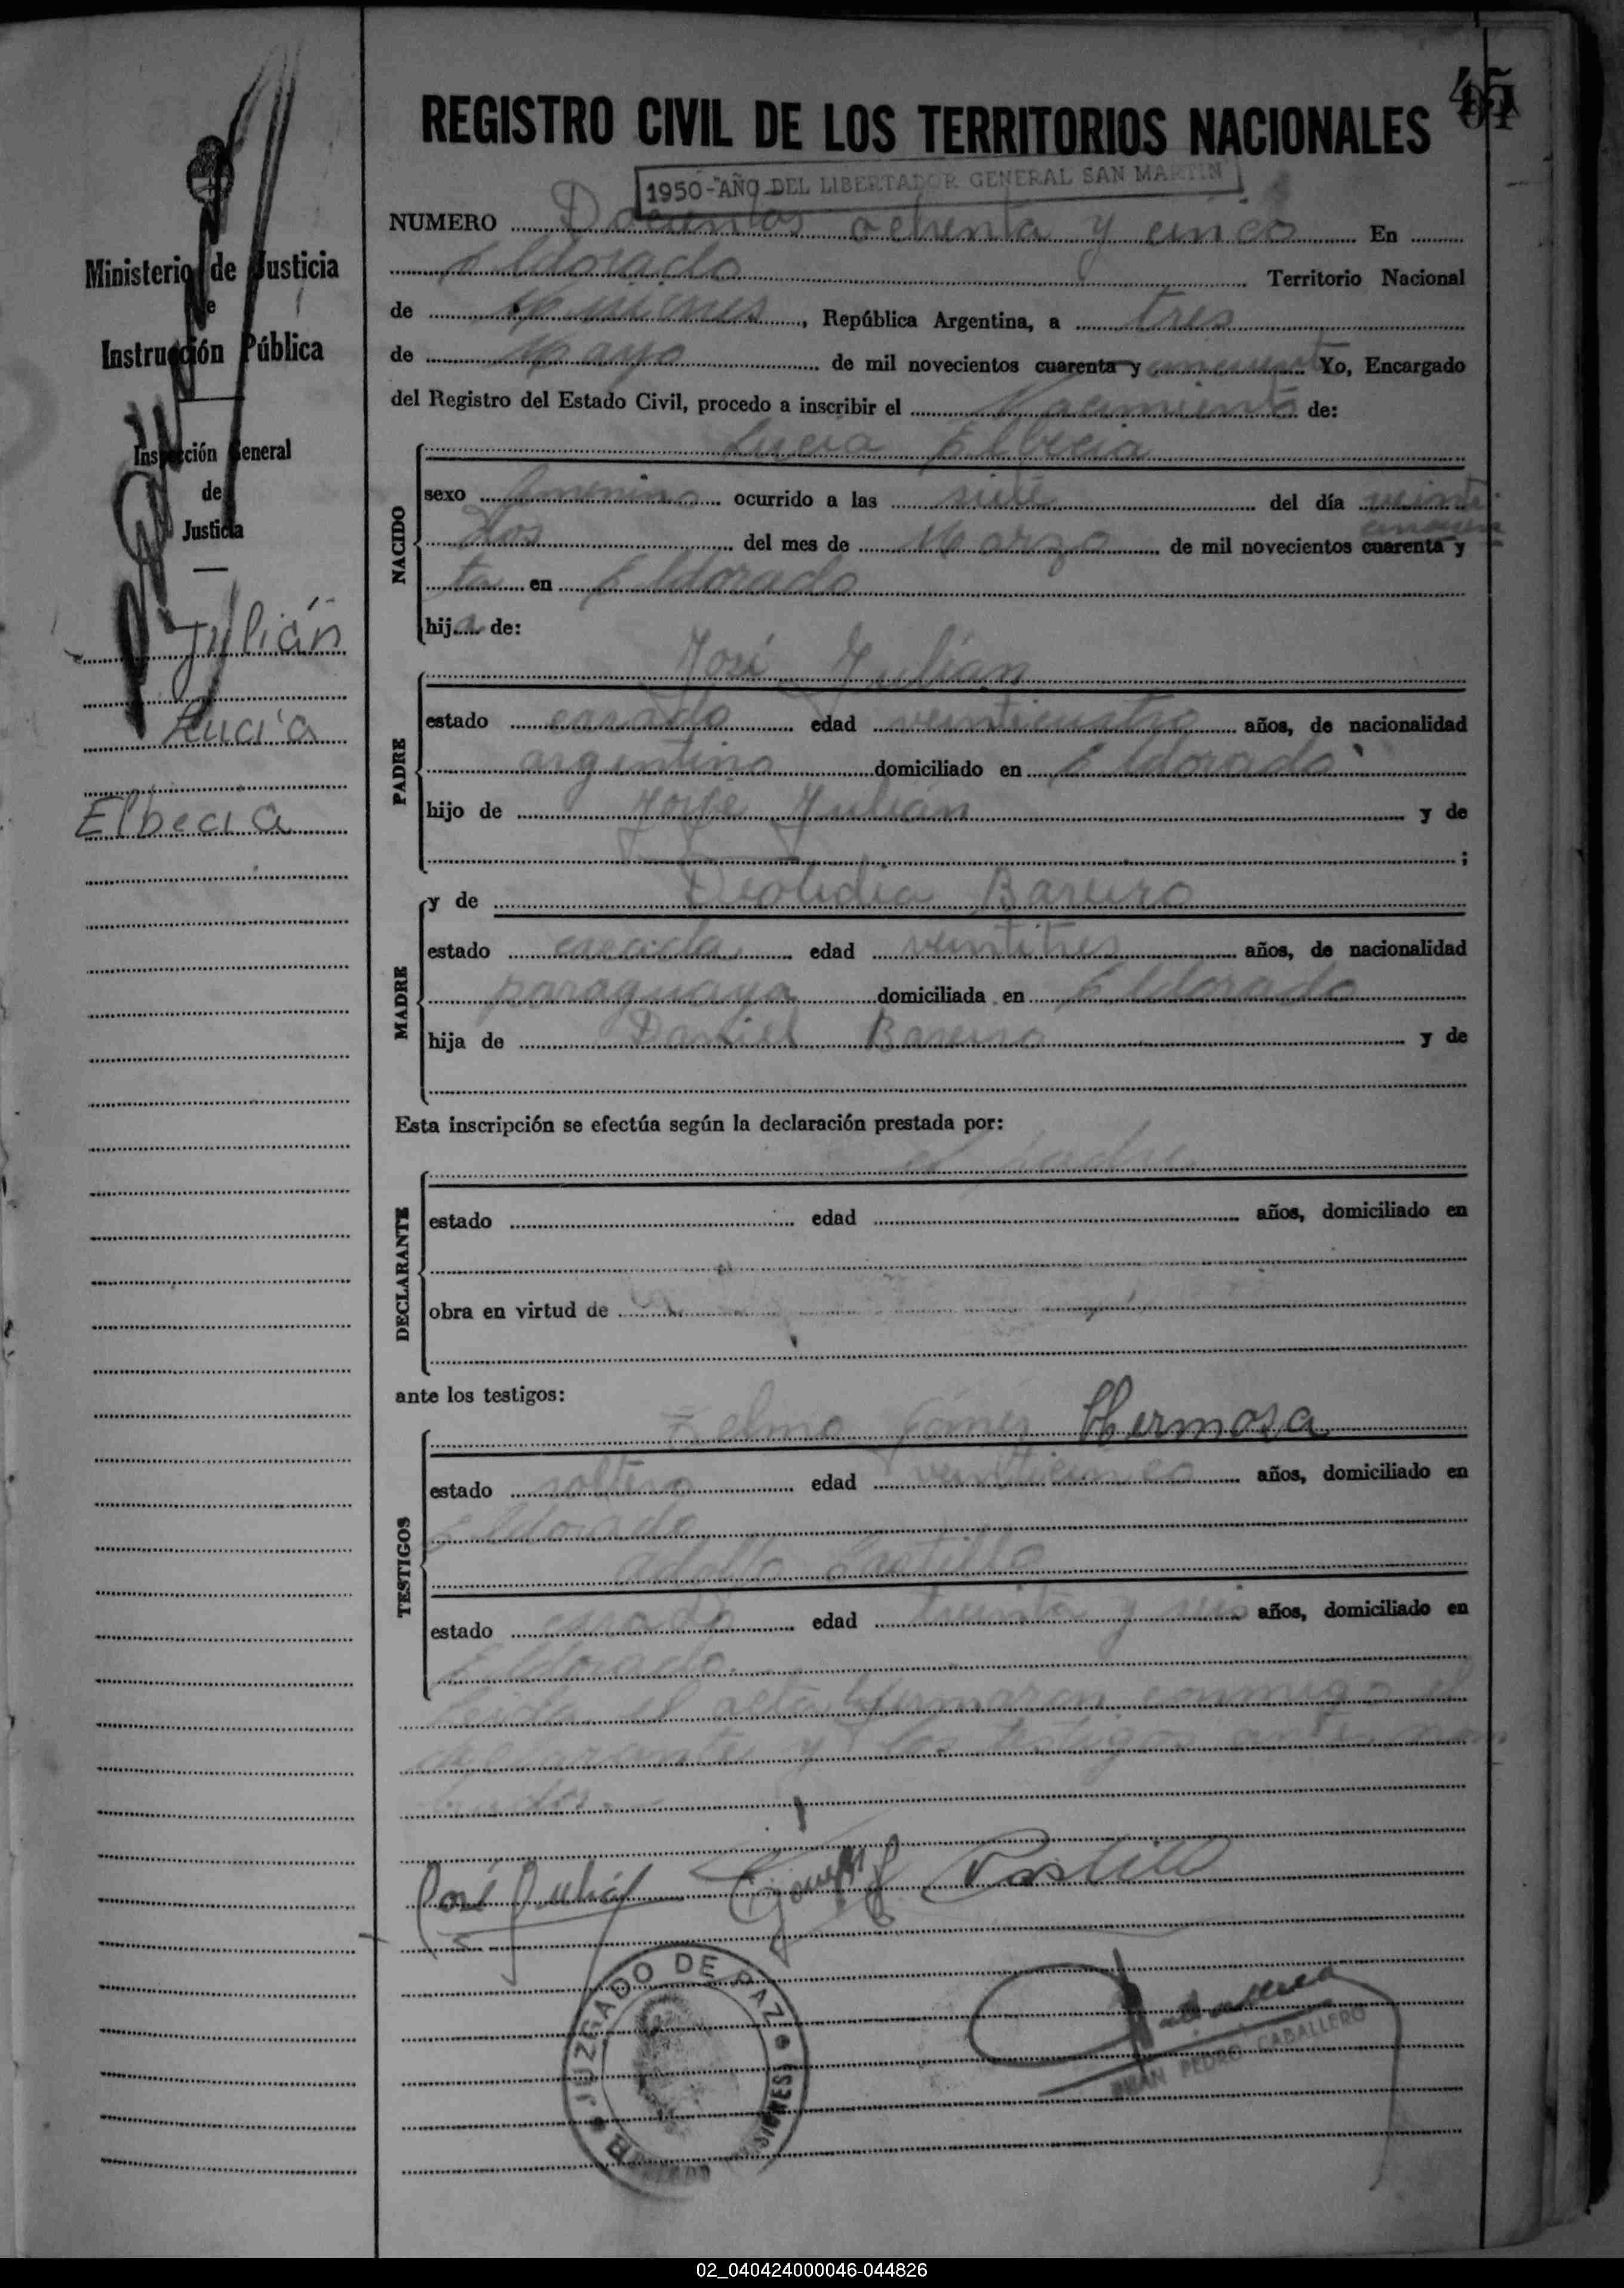 REGISTRO CIVIL DE LOS TERRITORIOS NACIONALES
1950 - AÑO DEL LIBERTADOR GENERAL SAN MARTIN
NUMERO Docientos ochenta y cinco En
Eldorado Territorio Nacional
de Misiones, República Argentina, a tres
de Mayo de mil novecientos cuarenta y cincuenta Yo, Encargado
del Registro del Estado Civil, procedo a inscribir el Nacimiento de:
Lucia Elbecia
NACIDO
sexo femenino ocurrido a las siete del día veinti
dos del mes de Marzo de mil novecientos cuarenta y cincuen
ta en Eldorado
hija de:
José Julián
PADRE
estado casado edad veinticuatro años, de nacionalidad
argentino domiciliado en Eldorado
hijo de Jorge Julián y de
;
y de Deolidia Bareiro
MADRE
estado casada edad veintitres años, de nacionalidad
paraguaya domiciliada en Eldorado
hija de Daniel Bareiro y de
Esta inscripción se efectúa según la declaración prestada por:
el padre
DECLARANTE
estado edad años, domiciliado en
obra en virtud de
ante los testigos:
Telmo Gómez Hermosa
TESTIGOS
estado soltero edad veinticinco años, domiciliado en
Eldorado
Adolfo Castillo
estado casado edad treinta y seis años, domiciliado en
Eldorado.
Leida el acta firmaran conmigo el
declarante y los testigos
José Julián
Castillo
JUZGADO DE PAZ
JUAN PEDRO CABALLERO
Ministerio de Justicia
e
Instrucción Pública
Inspección General
de
Justicia
Julián
Lucia
Elbecia
02_040424000046-044826